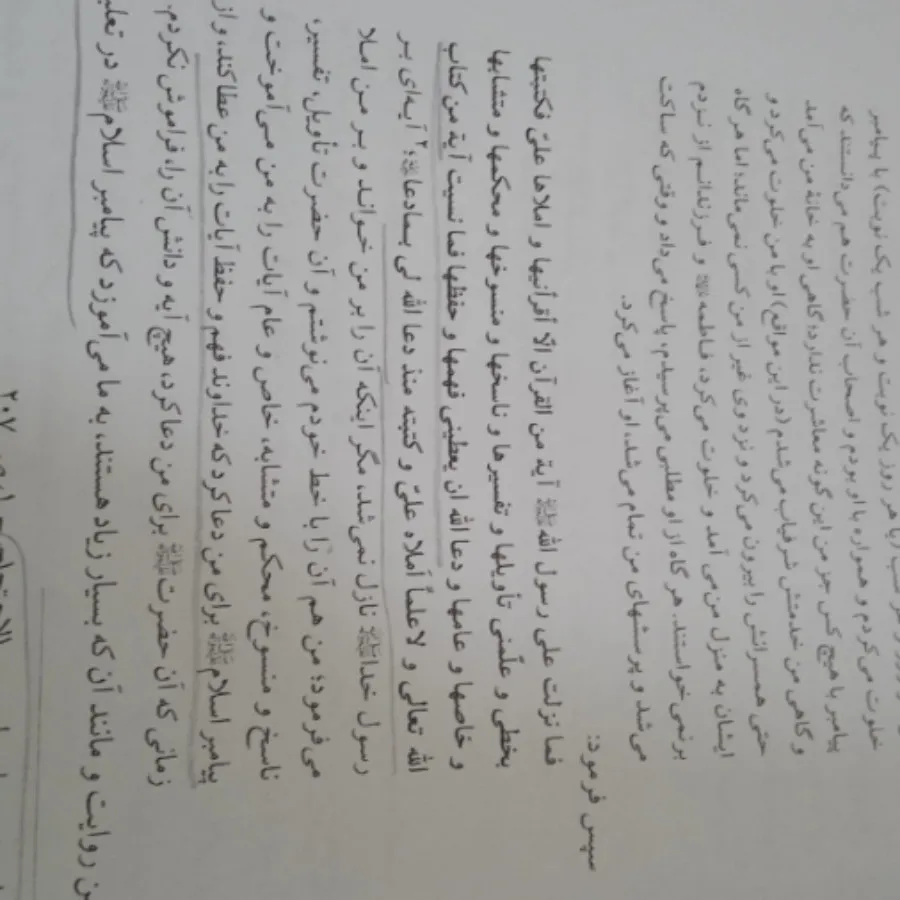 یک نوبت) با پیامبر
خلوت می‌کردم و همواره با او بودم و اصحاب آن حضرت هم می‌دانستند که
پیامبر با هیچ کس جز من این گونه معاشرت ندارد؛ گاهی او به خانهٔ من می‌آمد
و گاهی من خدمتش شرفیاب می‌شدم (در این مواقع) او با من خلوت می‌کرد و
حتی همسرانش را بیرون می‌کرد و نزد وی غیر از من کسی نمی‌ماند؛ اما هرگاه
ایشان به منزل من می‌آمد و خلوت می‌کرد، فاطمه و فرزندانم از نزدم
برنمی‌خواستند. هرگاه از او مطلبی می‌پرسیدم، پاسخ می‌داد و وقتی که ساکت
می‌شد و پرسشهای من تمام می‌شد، او آغاز می‌کرد.
سپس فرمود:
فما نزلت علی رسول الله ﷺ آیة من القرآن الّا أقرأنیها و املاها علیّ فکتبتها
بخطی و علّمنی تأویلها و تفسیرها و ناسخها و منسوخها و محکمها و متشابها
و خاصها و عامها و دعا الله ان یعطینی فهمها و حفظها فما نسیت آیة من کتاب
الله تعالی و لا علماً أملاه علیّ و کتبته منذ دعا الله لی بمادعا؛۲ آیه‌ای بر
رسول خدا ﷺ نازل نمی‌شد، مگر اینکه آن را بر من خواند و بر من املا
می‌فرمود؛ من هم آن را با خط خودم می‌نوشتم و آن حضرت تأویل، تفسیر،
ناسخ و منسوخ، محکم و متشابه، خاص و عام آیات را به من می‌آموخت و
پیامبر اسلام ﷺ برای من دعا کرد که خداوند فهم و حفظ آیات را به من عطا کند، و از
زمانی که آن حضرت ﷺ برای من دعا کرد، هیچ آیه و دانش آن را، فراموش نکردم.
روایت و مانند آن که بسیار زیاد هستند، به ما می‌آموزد که پیامبر اسلام ﷺ در
۲۰۷